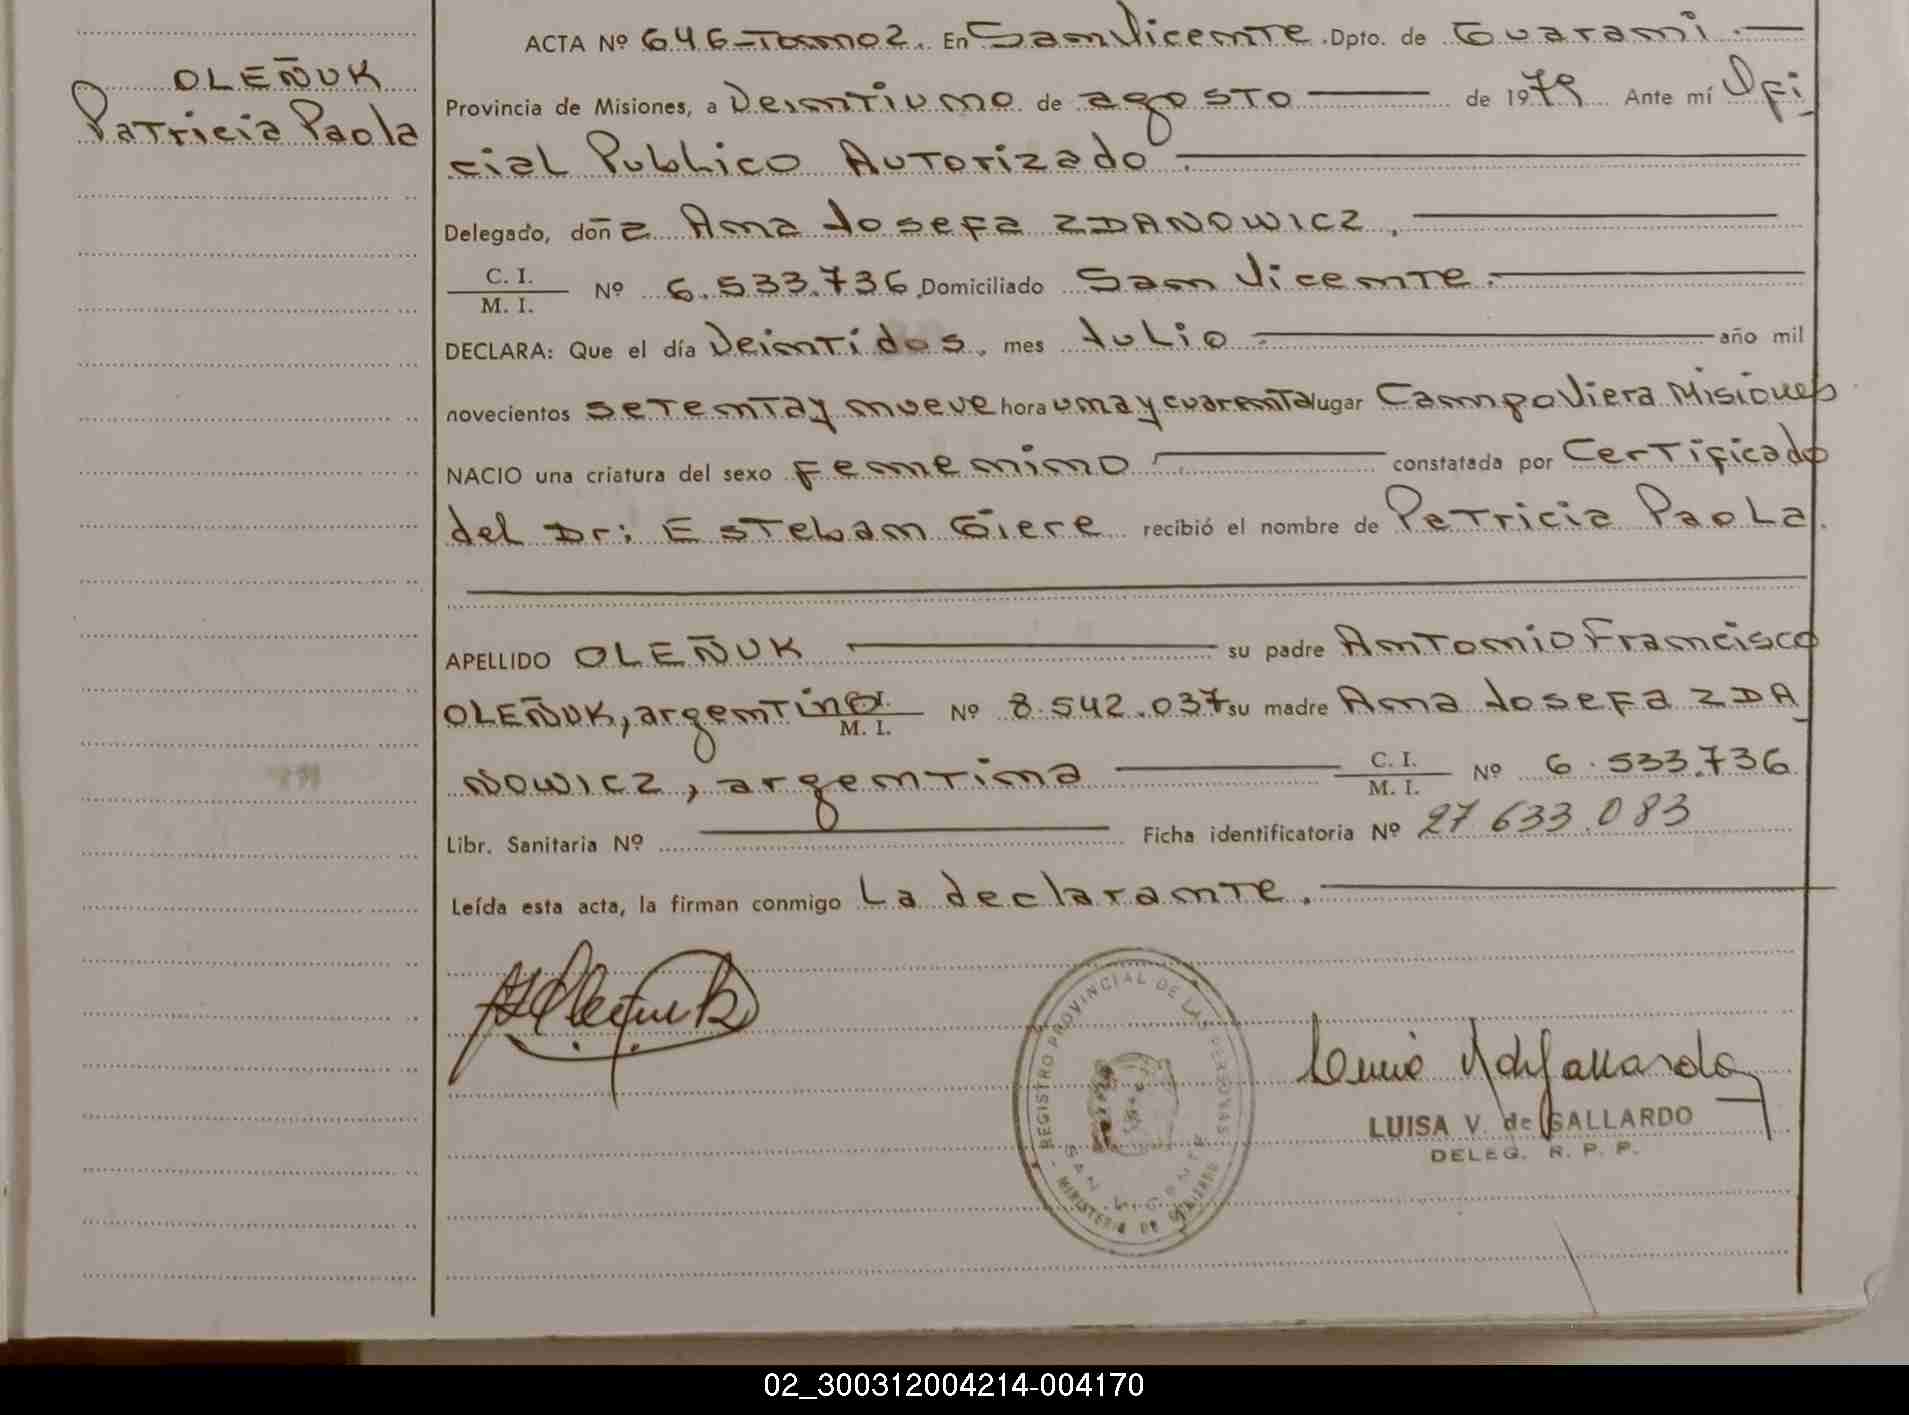 OLEÑUK
Patricia Paola
ACTA Nº 646-Tomo 2. En San Vicente. Dpto. de Guarani.
Provincia de Misiones, a Veintiuno de agosto de 1979 Ante mí Ofi
cial Publico Autorizado
Delegado, doña Ana Josefa ZDANOWICZ,
C. I.
M. I. Nº 6.533.736, Domiciliado San Vicente.
DECLARA: Que el día Veintidos, mes Julio año mil
novecientos setenta y nueve hora una y cuarenta lugar Campo Viera Misiones
NACIO una criatura del sexo femenino constatada por Certificado
del Dr: Esteban Giere recibió el nombre de Patricia Paola.
APELLIDO OLEÑUK su padre Antonio Francisco
OLEÑUK, argentino M. I. Nº 8.542.037 su madre Ana Josefa ZDA
NOWICZ, argentina C. I. M. I. Nº 6.533.736
Libr. Sanitaria Nº Ficha identificatoria Nº 27 633.083
Leída esta acta, la firman conmigo La declarante.
REGISTRO PROVINCIAL DE LAS PERSONAS
SAN VICENTE
MINISTERIO DE GOBIERNO
LUISA V. de GALLARDO
DELEG. R. P. P.
02_300312004214-004170